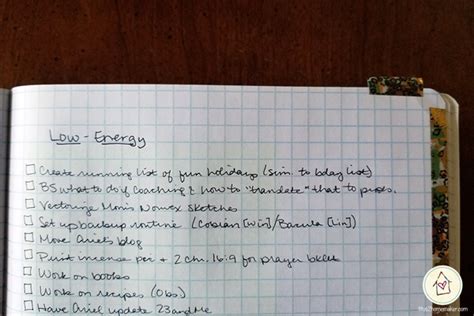 Low-Energy
Create running list of fun holidays (sim. to bday list)
BS what to do if coaching & how to "translate" that to posts.
Vectorize Mom's Nomex sketches
Set up backup routine (Cobian [Win]/Bacula [Lin])
Move Ariel's blog
Print incense per + 2 ch. 16:9 for prayer
Work on books
Work on recipes (Obs)
Have Ariel update 23andMe